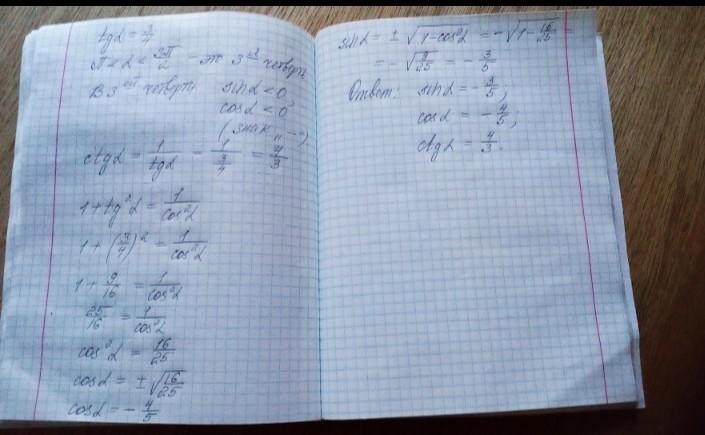 tgα = 3/4
π < α < 3π/2 - это 3 ья четверть
В 3 ей четверти sinα < 0
cosα < 0
(знак „-")
ctgα = 1/tgα = 1/(3/4) = 4/3
1 + tg²α = 1/cos²α
1 + (3/4)² = 1/cos²α
1 + 9/16 = 1/cos²α
25/16 = 1/cos²α
cos²α = 16/25
cosα = ±√(16/25)
cosα = - 4/5
sinα = ± √(1-cos²α) = -√(1-16/25) =
= -√(9/25) = - 3/5
Ответ: sinα = - 3/5;
cosα = - 4/5;
ctgα = 4/3.